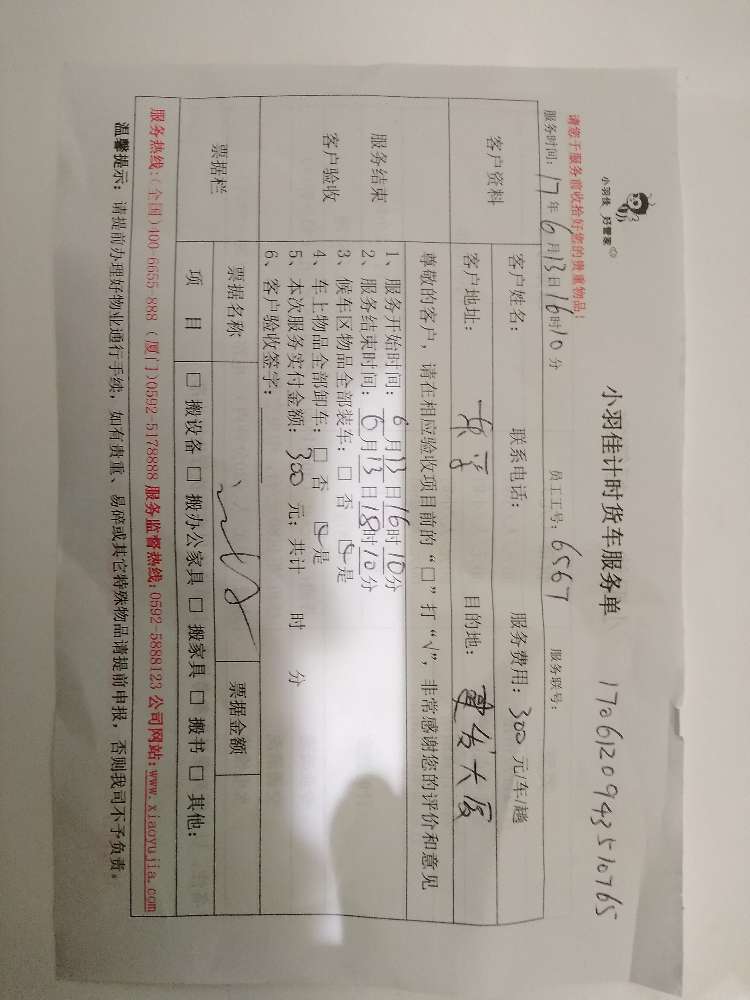 小羽佳 好管家
小羽佳计时货车服务单 1706120943510765
请您于服务前收拾好您的贵重物品!
服务时间: 17年6月13日16时10分 员工工号: 6567 服务联号:
客户资料
客户姓名: 联系电话: 服务费用: 300 元/车/趟
客户地址: 目的地: 建发大厦
服务结束
客户验收
尊敬的客户, 请在相应验收项目前的“□”打“√”, 非常感谢您的评价和意见
1、服务开始时间: 6月13日16时10分
2、服务结束时间: 6月13日18时10分
3、候车区物品全部装车: □ 否 ☑ 是
4、车上物品全部卸车: □ 否 ☑ 是
5、本次服务实付金额: 300 元; 共计 时 分
6、客户验收签字:
票据栏
票据名称 票据金额
项 目 □ 搬设备 □ 搬办公家具 □ 搬家具 □ 搬书 □ 其他:
服务热线:(全国)400-6655 888 (厦门)0592-5178888 服务监督热线:0592-5888123 公司网站:www.xiaoyujia.com
温馨提示: 请提前办理好物业通行手续, 如有贵重、易碎或其它特殊物品请提前申报, 否则我司不予负责。